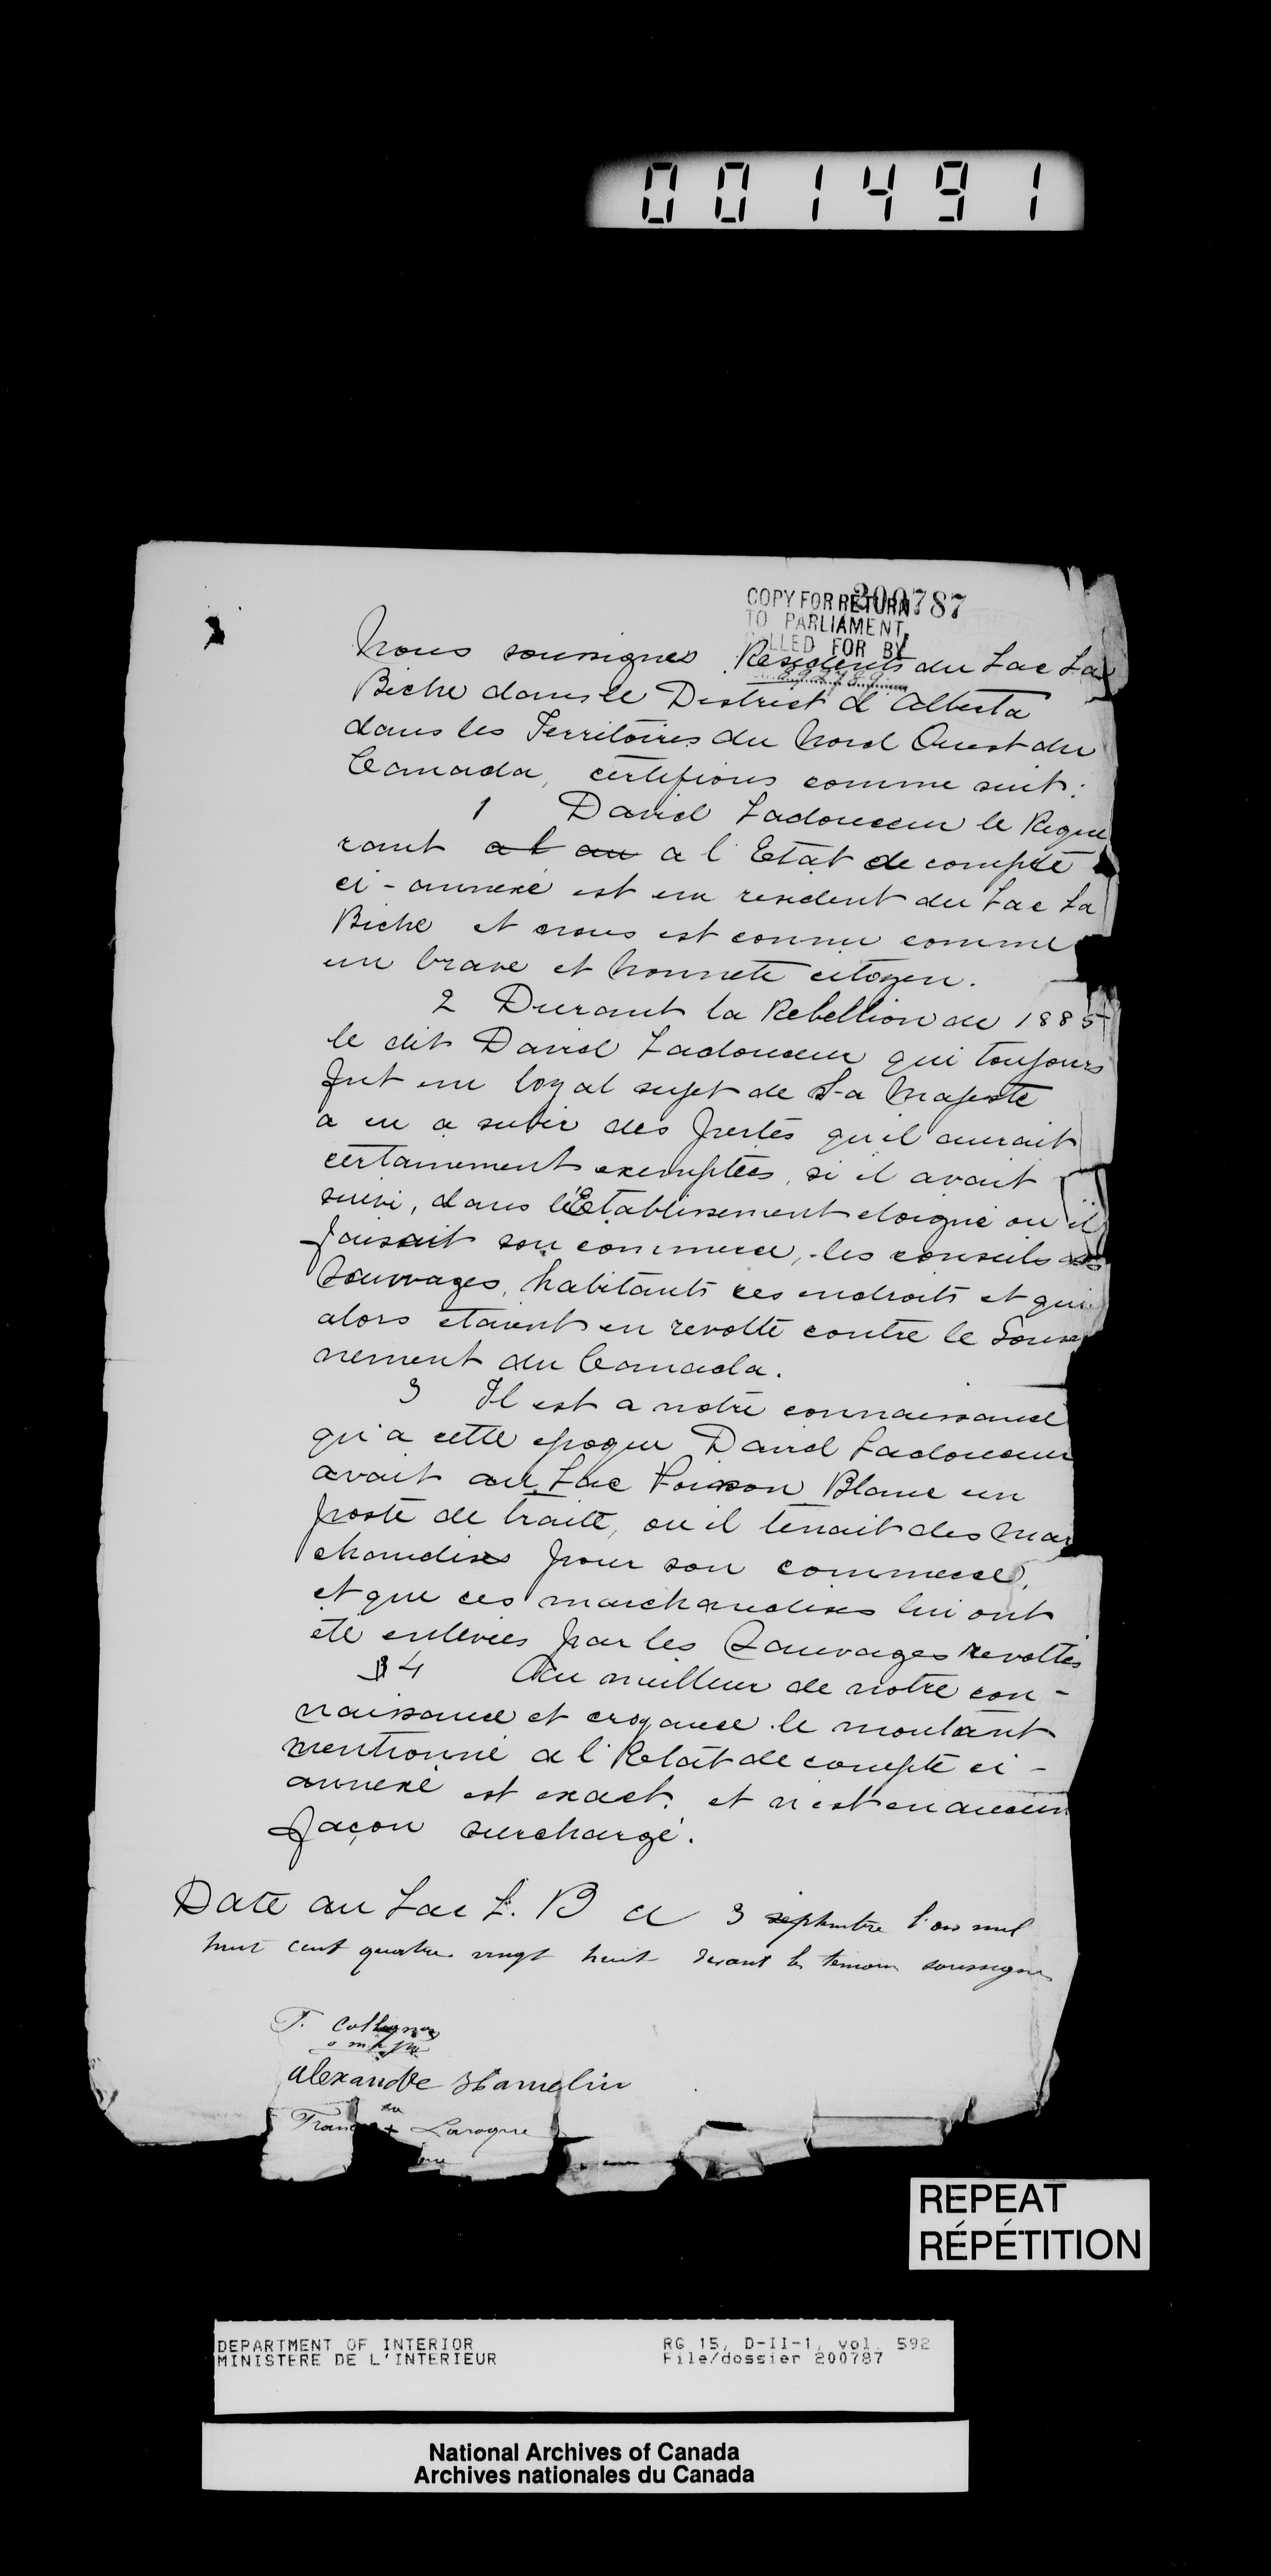 001491
200787
COPY FOR RETURN
TO PARLIAMENT,
CALLED FOR BY
Nous soussignes Residents du Lac La
Biche dans le District d'Alberta
dans les Territoires du Nord Ouest du
Canada, certifions comme suit:
1 David Ladouceur le Reque
rant a l au a l'Etat de compte
ci-annexé est un resident du Lac La
Biche et nous est connu comme
un brave et honnete citoyen.
2 Durant la Rebellion de 1885
le dit David Ladouceur qui toujours
fut un loyal sujet de Sa Majeste
a eu a subir des pertes qu'il aurait
certainement exemptées, si il avait
suivi, dans l'Etablissement eloigné ou il
faisait son commerce, les conseils des
Sauvages, habitants ces endroits et qui
alors etaient en revolte contre le Gouver
nement du Canada.
3 Il est a notre connaissance
qu'a cette epoque David Ladouceur
avait au Lac Poisson Blanc un
poste de traite, ou il tenait des mar
chandises pour son commerce,
et que ces marchandises lui ont
été enlevées par les Sauvages revoltés
4 Au meilleur de notre con-
naissance et croyance le montant
mentionné a l'Etat de compte ci-
annexé est exact. et n'est en aucun
façon surchargé.
Daté au Lac L. B ce 3 septembre l'an mil
huit cent quatre vingt huit devant le temoin soussigné
T. Collignon
o m i
Alexandre Hamelin
Francis + Laroque
REPEAT
RÉPÉTITION
DEPARTMENT OF INTERIOR
MINISTERE DE L'INTERIEUR
RG 15, D-II-1, vol. 592
File/dossier 200787
National Archives of Canada
Archives nationales du Canada